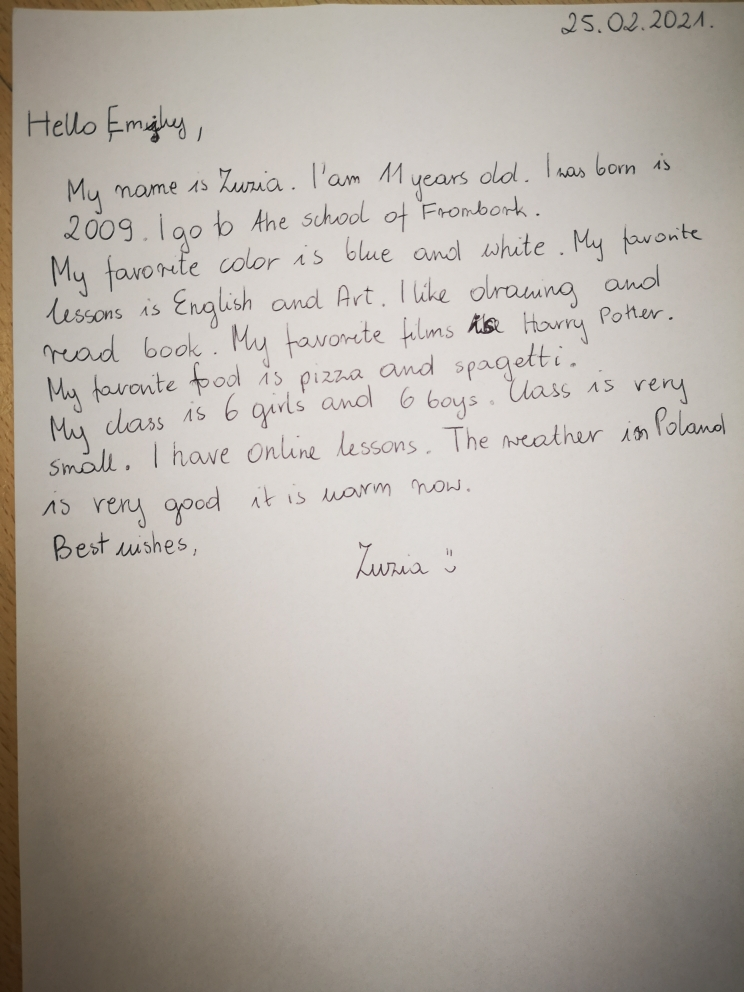 25.02.2021.
Hello
My name is Zuzia. I'am 11 years old. I was born is
2009. I go to the school of Frombork.
My favorite color is blue and white. My favorite
lessons is English and Art. I like drawing and
read book. My favorite films is Harry Potter.
My favorite food is pizza and spagetti.
My class is 6 girls and 6 boys. Class is very
small. I have online lessons. The weather in Poland
is very good it is warm now.
Best wishes,
Zuzia